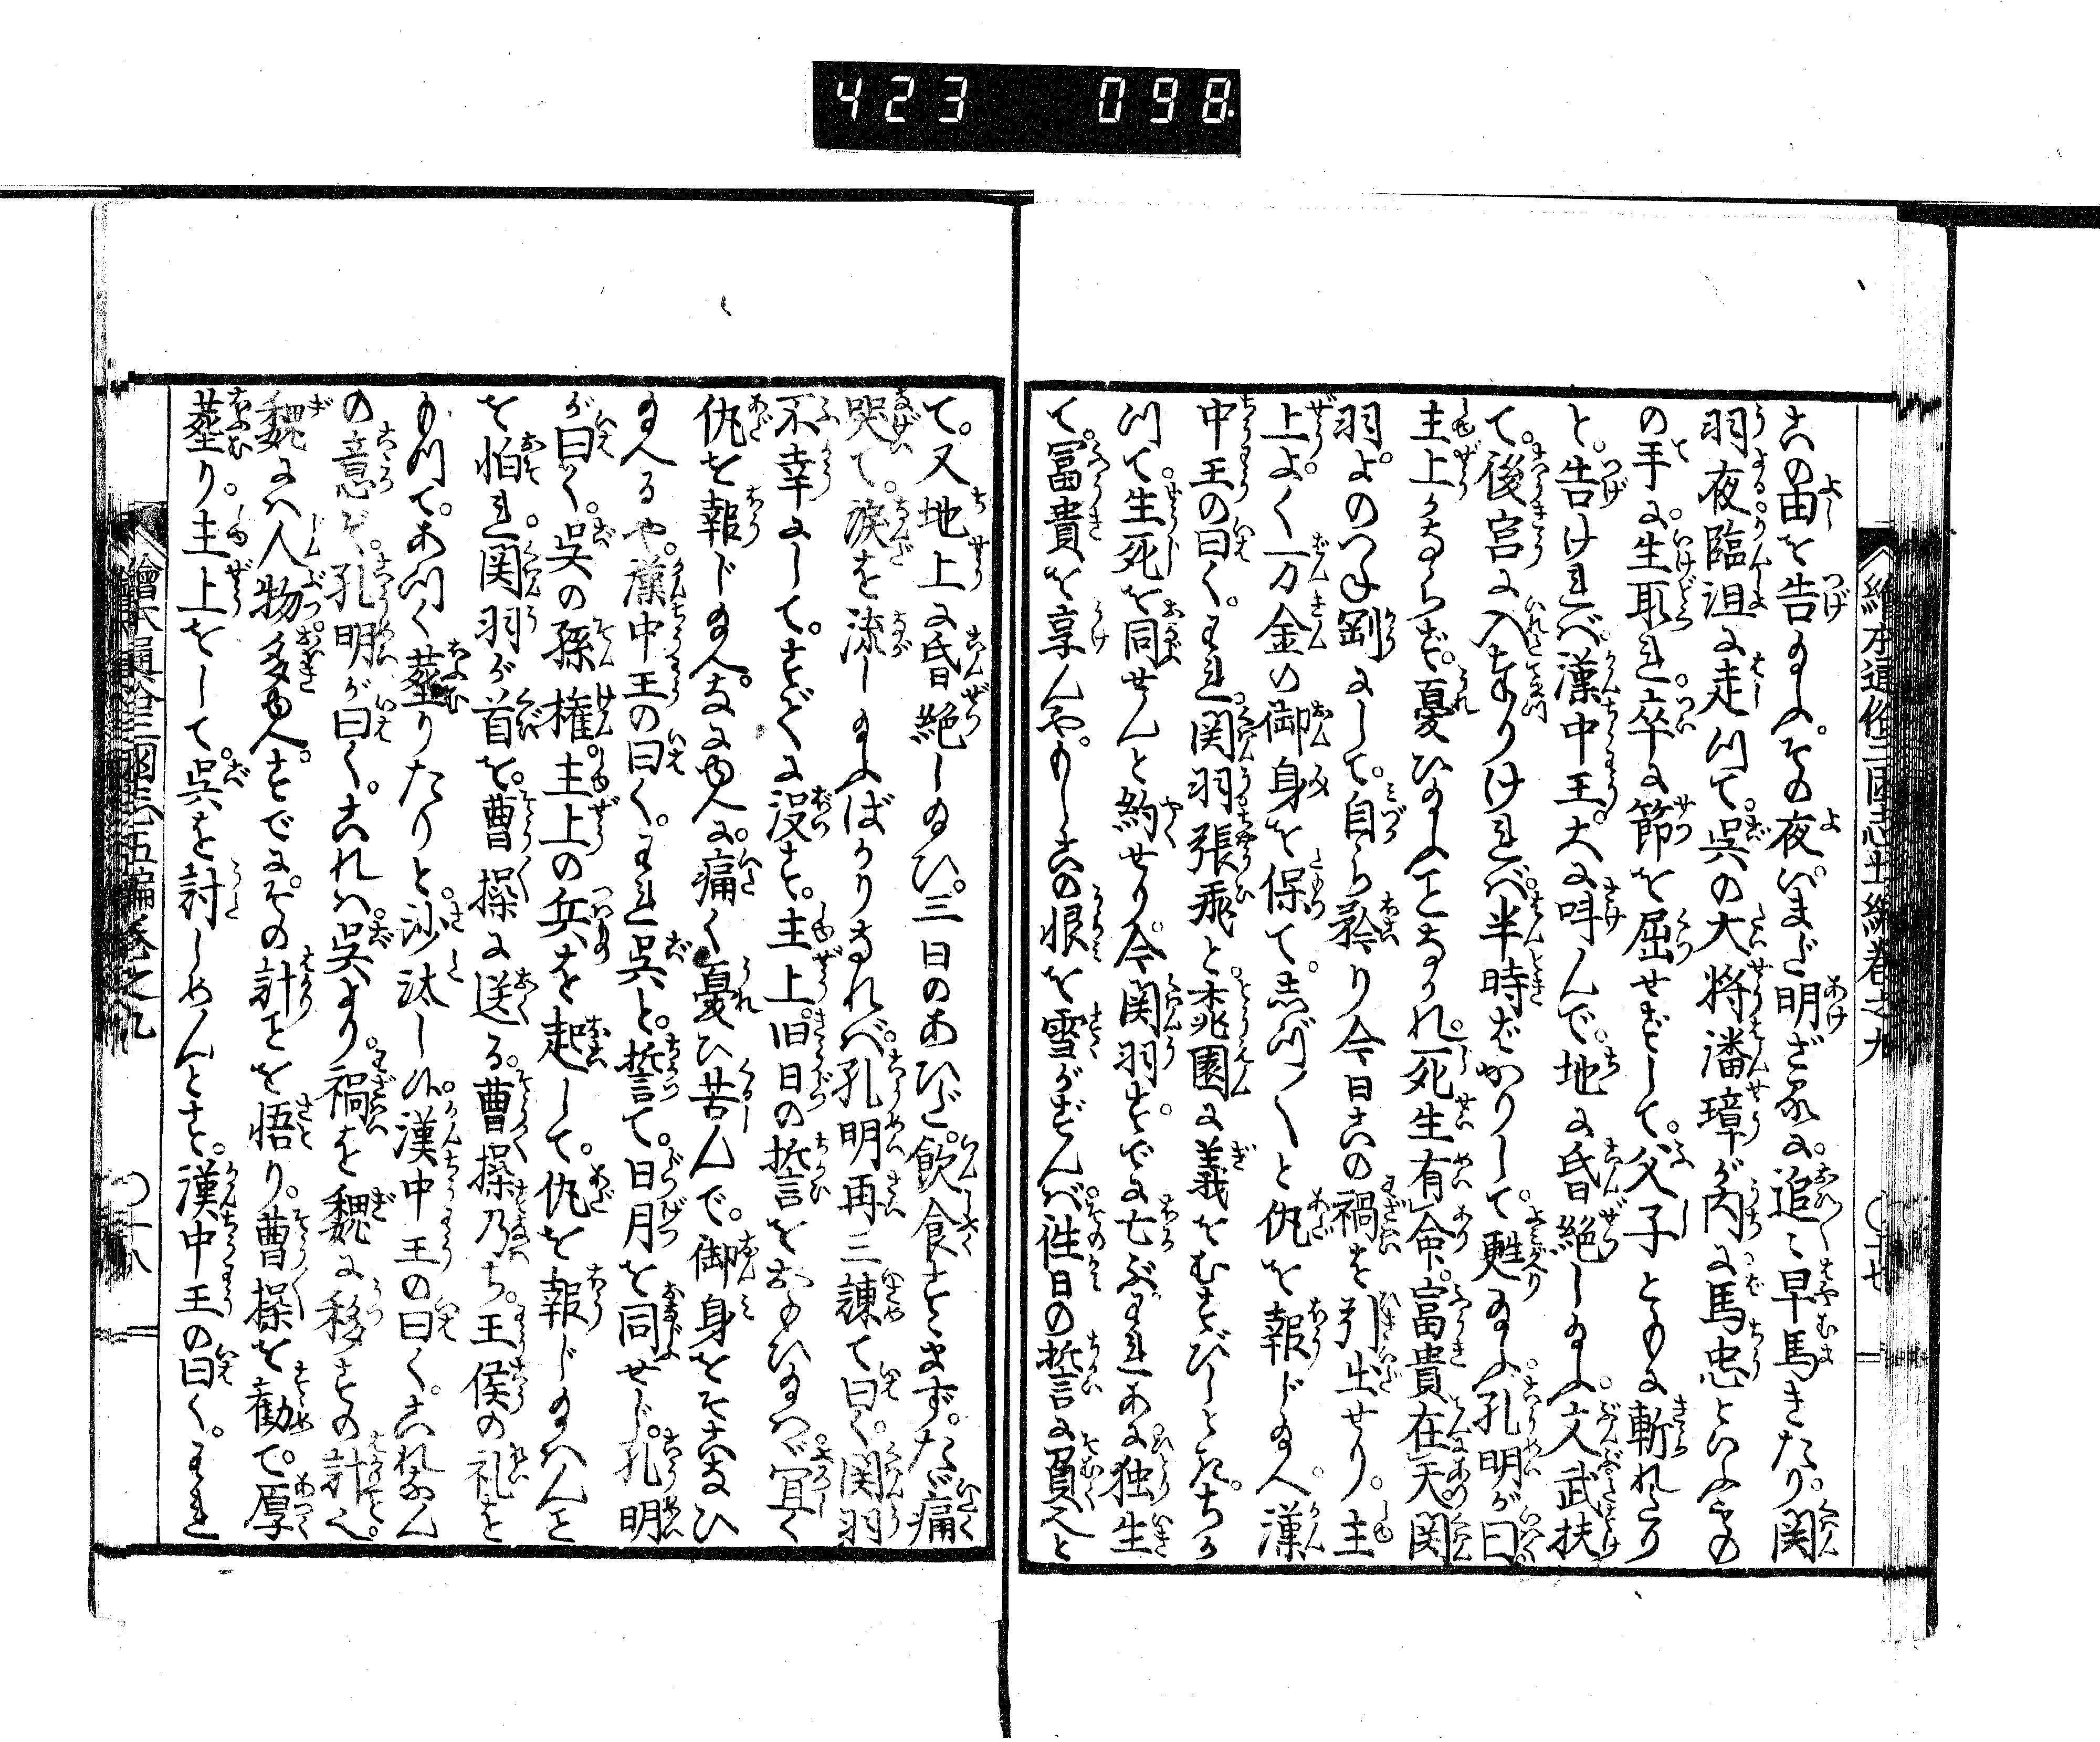 423 098
この由を告給ふ。その夜いまだ明ざるに。追〻早馬きたり。関
羽夜臨沮に走つて。呉の大将潘璋が内に。馬忠といふもの
の手に生取れ。卒に節を屈せずして。父子ともに斬れたり
と。告ければ。漢中王大に叫んで。地に昏絶し給ふ。文武扶
て。後宮に入奉りければ。半時ばかりして甦給ふ。孔明が曰。
主上かならず。憂ひ給ふことなかれ。死生有命。富貴在天。関
羽よのつね剛にして。自ら矜り今日この禍を引出せり。主
上よく万金の御身を保て。しづ〳〵と仇を報じ給へ。漢
中王の曰く。われ関羽張飛と。桃園に義をむすびしとき。ちか
つて。生死を同せんと約せり。今関羽すでに亡ぶ。われあに独生
て。冨貴を享んや。もしこの恨を雪がずんば。往日の誓に負くと
て。又地上に昏絶し給ひ。三日のあひだ。飲食すゝまず。たゞ痛
哭て。涙を流し給ふばかりなれば。孔明再三諫て曰く。関羽
不幸にして。すでに没す。主上。旧日の誓をおもひ給はゞ。宜く
仇を報じ給へ。なにゆへに。痛く憂ひ苦んで。御身をそこなひ
給へるや。漢中王の曰く。われ呉と。誓て。日月を同せじ。孔明
が曰く。呉の孫権。主上の兵を起して。仇を報じ給はんこと
を怕れ。関羽が首を。曹操に送る。曹操乃ち。王侯の礼を
もつて。あつく葬りたりと。沙汰し候。漢中王の曰く。これなん
の意ぞ。孔明が曰く。これは呉より。禍を魏に移すの計なり。
魏には人物多ゆへ。すでに。その計ことを悟り。曹操を勧て。厚
葬り。主上をして。呉を討しめんとす。漢中王の曰く。われ
絵本通俗三国志七編巻之九
〇十七
〇十八